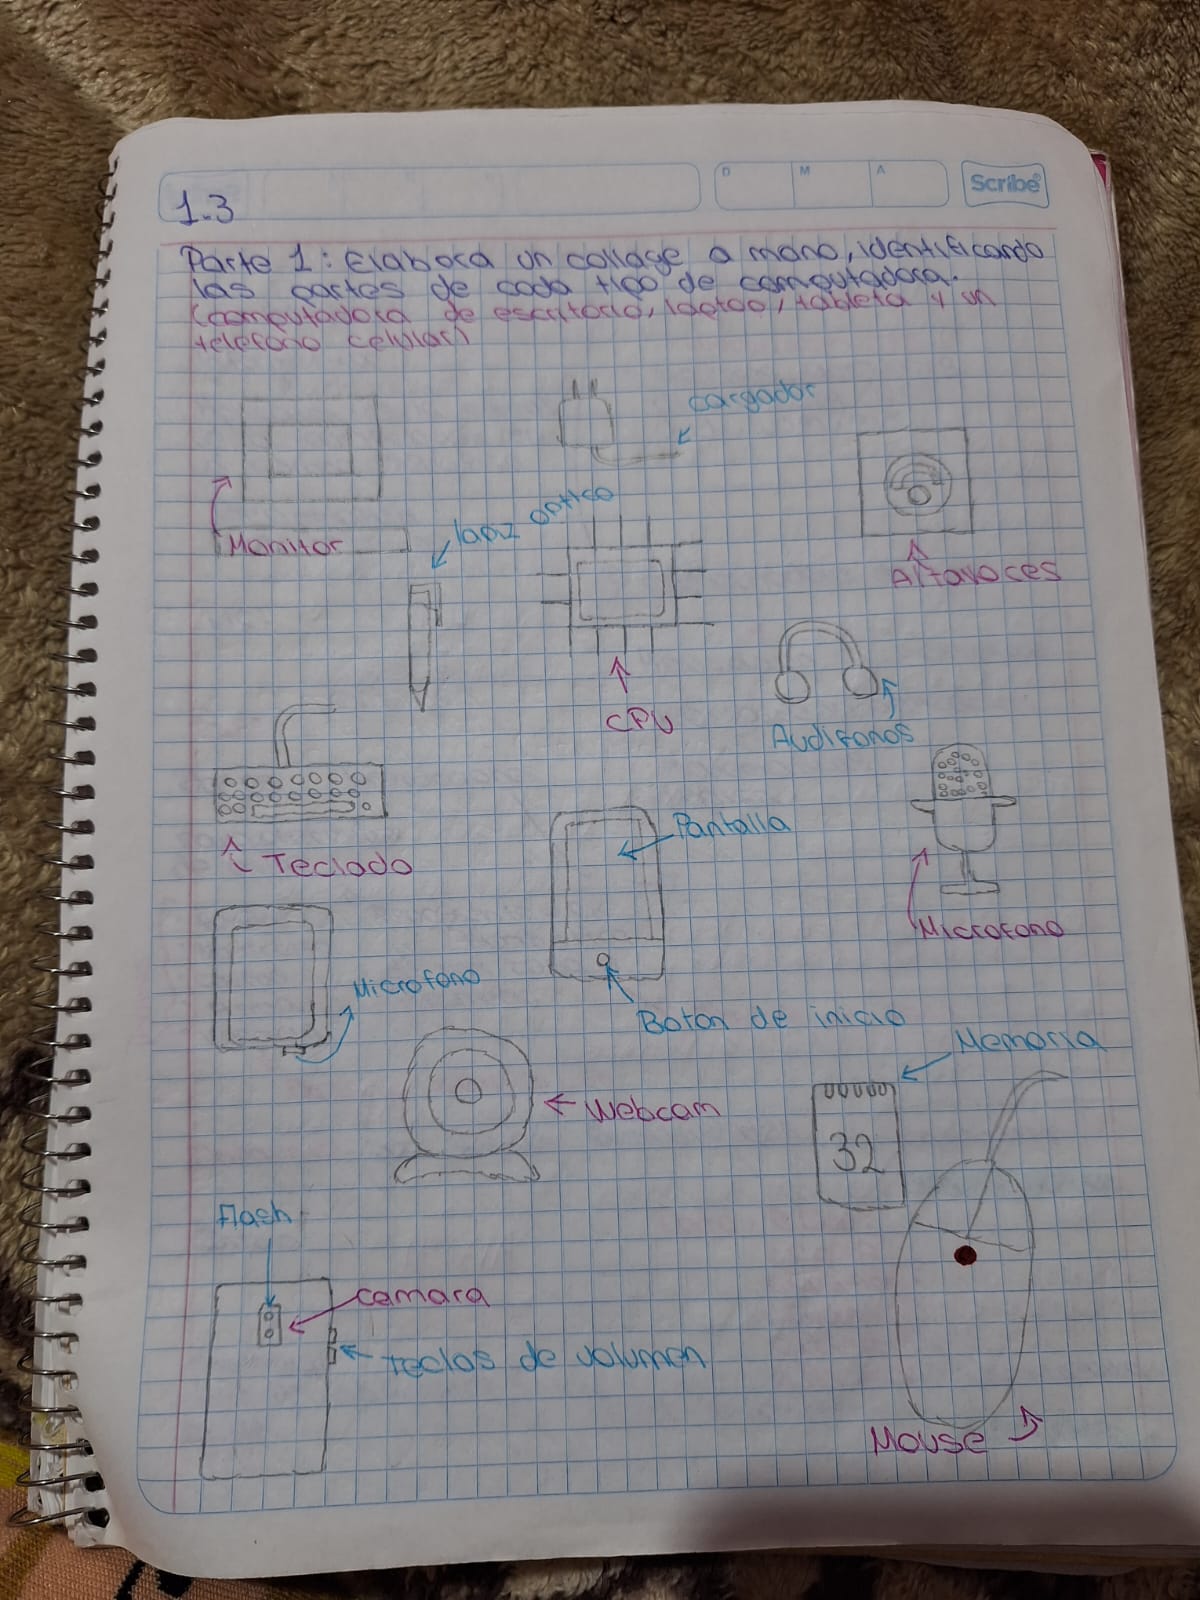 D M A
Scribe
1.3
Parte 1: Elabora un collage a mano, identificando
las partes de cada tipo de computadora.
(computadora de escritorio, laptop, tableta y un
telefono celular)
cargador
lapiz optico
Monitor
Altavoces
CPU
Audifonos
Pantalla
Teclado
Microfono
Microfono
Boton de inicio
Memoria
Webcam
32
flash
camara
teclas de volumen
Mouse